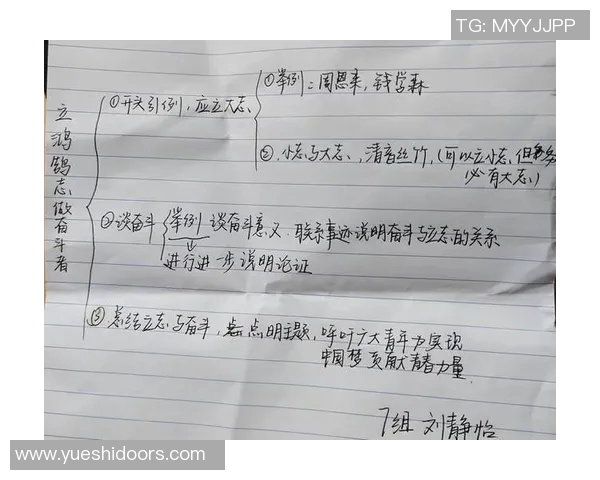 TG: MYYJJPP
立鸿鹄志,做奋斗者
①开头引例,应立大志
①举例:周恩来,钱学森
②.小志与大志,清音丝竹,(可以立小志,但
必有大志)
②谈奋斗
举例 谈奋斗意义.联系事迹说明奋斗与立志的关系
进行进一步说明论证
③总结立志与奋斗,点明主题,呼吁广大青年为实现
中国梦贡献青春力量.
7组 刘静怡
www.yueshidoors.com